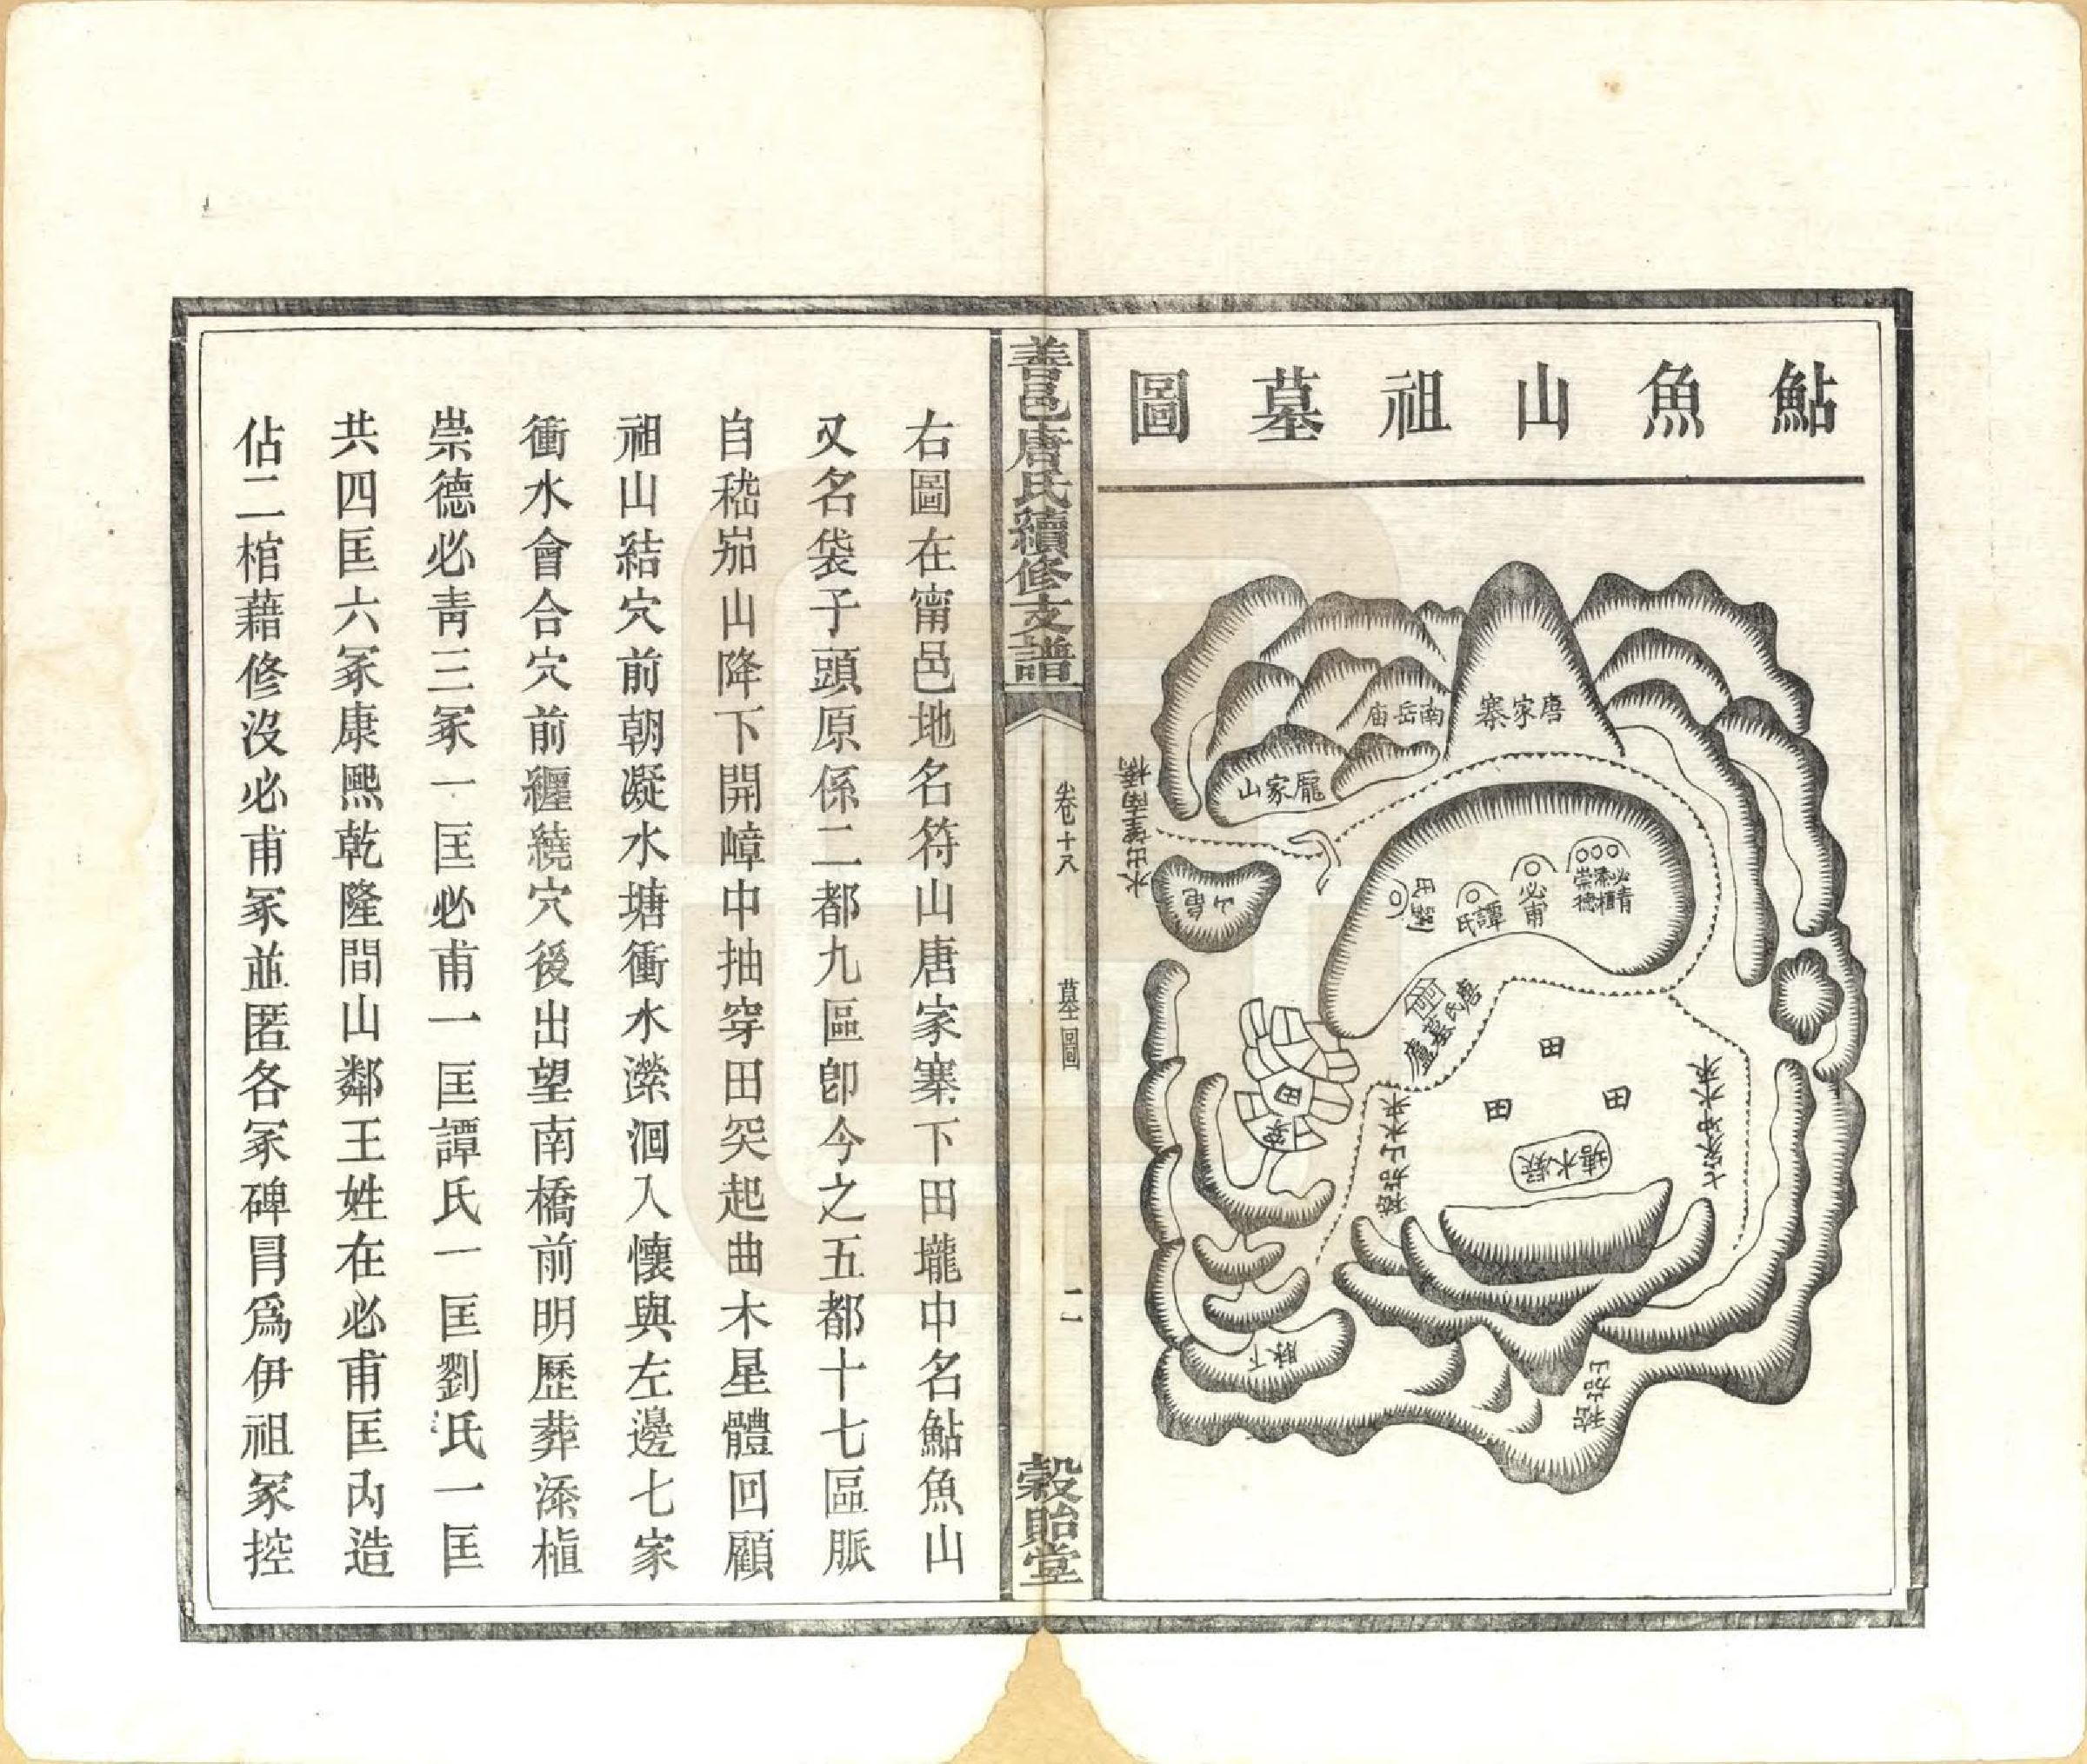 鮎魚山祖墓圖
唐家寨
南岳廟
龐家山
水出望南橋
龜山
必青
添樻
崇德
必甫
譚氏
劉氏
唐氏墓廬
田
田
田
田
家
嵇茄山水來
七家冲水來
凝水塘
下脉
嵇茄山
善邑唐氏續修支譜
卷十八
墓圖
二
穀貽堂
右圖在甯邑地名符山唐家寨下田壠中名鮎魚山
又名袋子頭原係二都九區卽今之五都十七區脈
自嵇茄山降下開嶂中抽穿田突起曲木星體回顧
祖山結穴前朝凝水塘衝水瀠洄入懷與左邊七家
衝水會合穴前纒繞穴後出望南橋前明歷葬添樻
崇德必靑三冢一匡必甫一匡譚氏一匡劉氏一匡
共四匡六冢康熙乾隆間山鄰王姓在必甫匡內造
佔二棺藉修沒必甫冢並匿各冢碑冐爲伊祖冢控